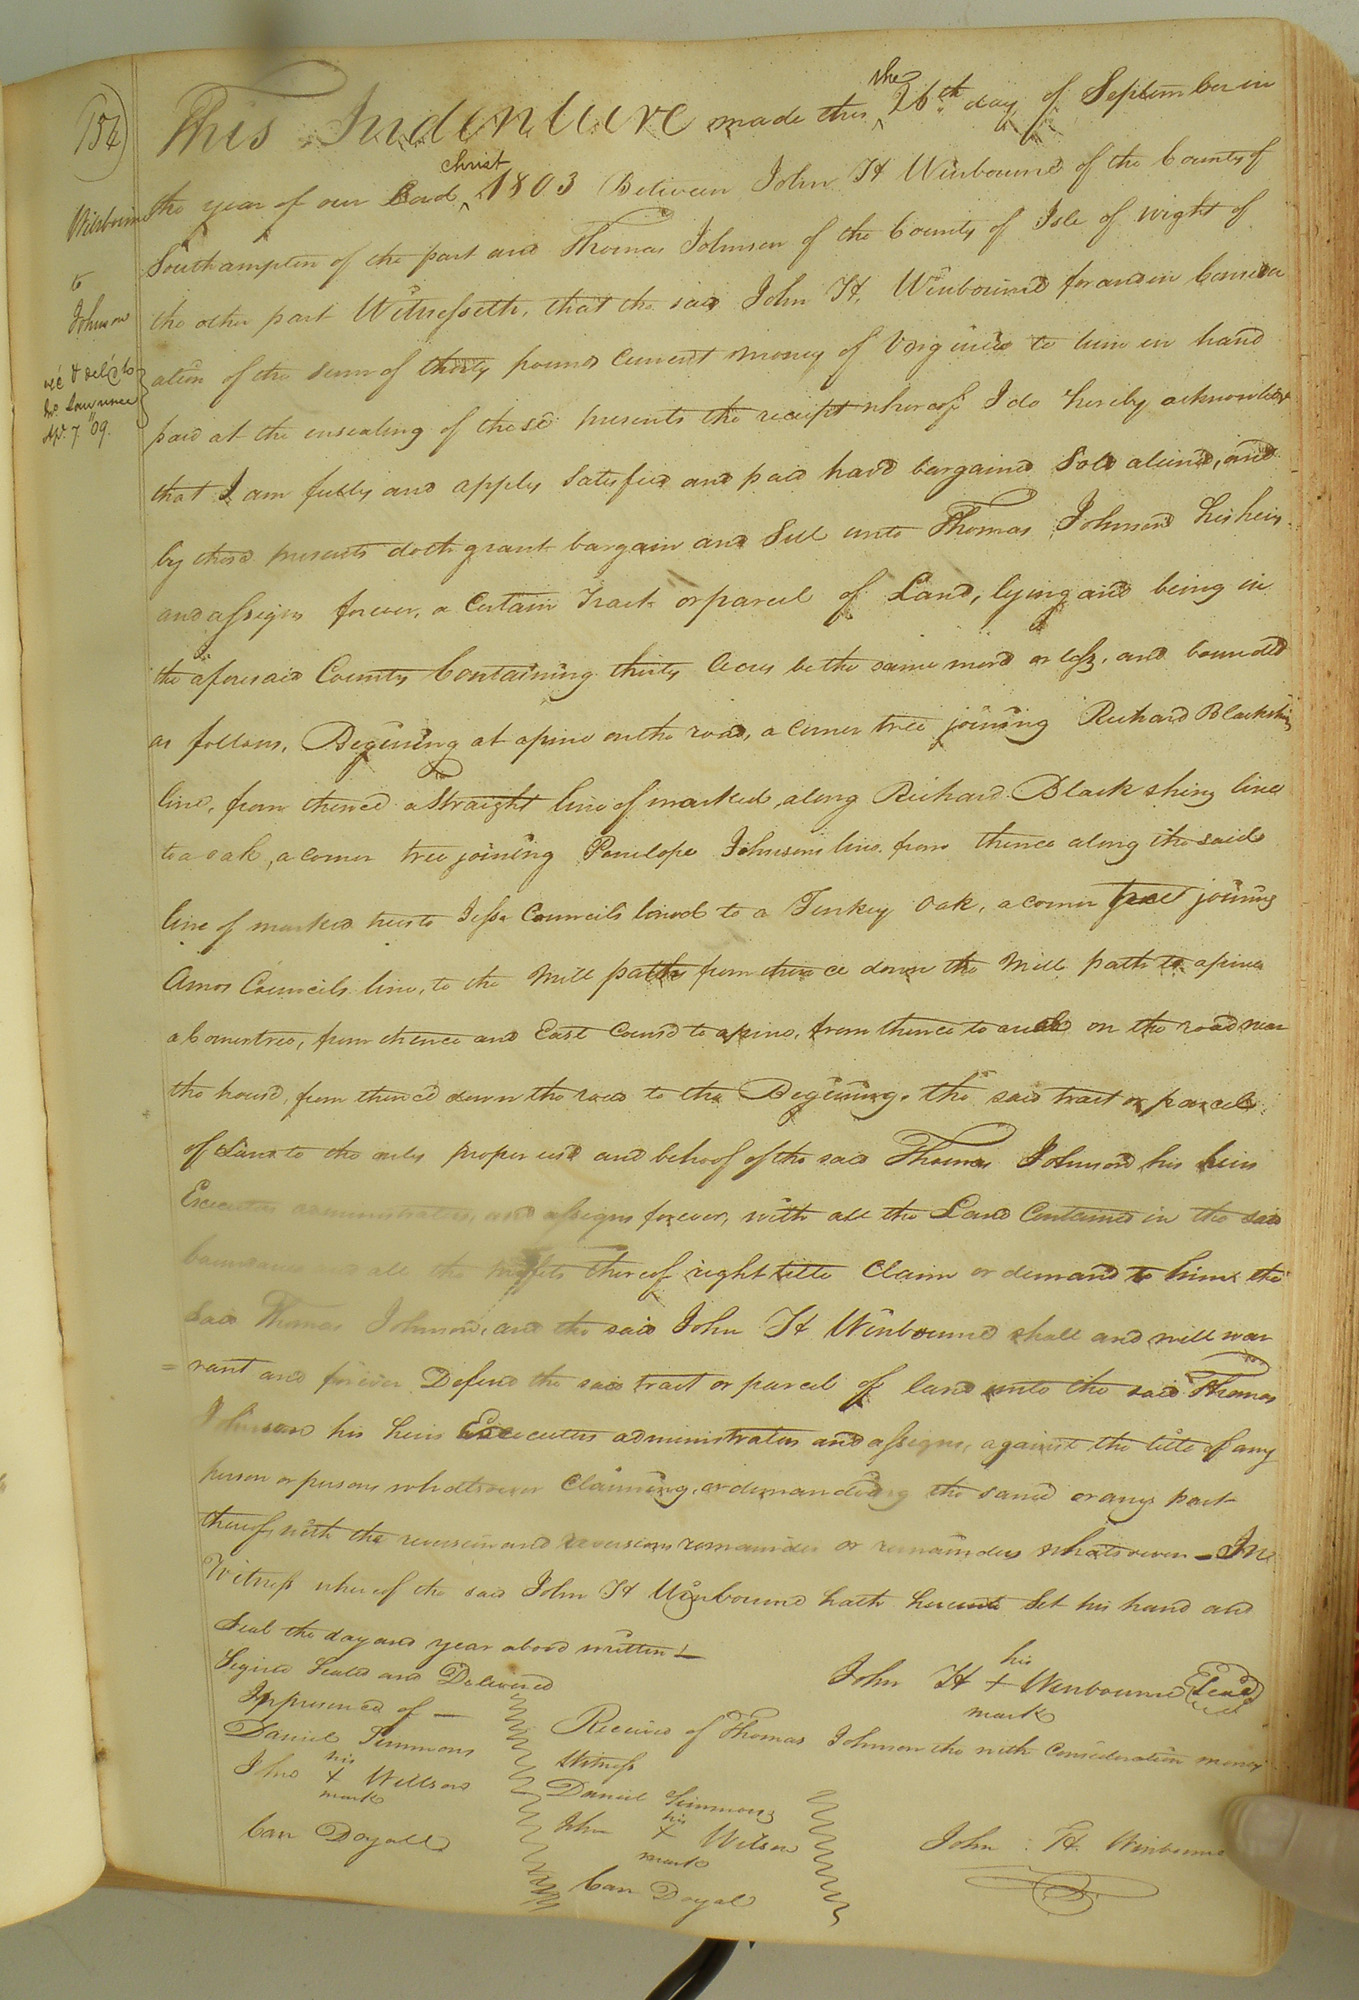 154
Winbourne
to
Johnson
rec'd & del'd to
Jno Lawrence
Apr. 7 "09.
This Indenture made this the 26th day of September in
the year of our Lord Christ 1803 Between John H Winbourne of the County of
Southampton of the part and Thomas Johnson of the County of Isle of wight of
the other part Witnesseth, that the said John H. Winbourne for and in Consider
ation of the sum of thirty pounds Current money of Virginia to him in hand
paid at the ensealing of these presents the receipt whereof I do hereby acknowledge
that I am fully and apply satisfied and paid have bargained Sold aliend, and
by these presents doth grant bargain and Sell unto Thomas Johnson his heirs
and assigns forever, a Certain Tract or parcel of Land, lying and being in
the aforesaid County Containing thirty acres be the same more or less, and bounded
as follows, Begining at a pine on the road, a corner tree joining Richard Blackshins
line, from thence a Straight line of marked, along Richard Black shins line
to a oak, a corner tree joining Penelope Johnsons line from thence along the said
line of marked trees to Jesse Councils line to a Turkey Oak, a corner tree joining
Amos Councils line, to the Mill path from thence down the Mill path to a pine
a Corner tree, from thence and East Course to a pine, from thence to an on the road near
the house, from thence down the road to the Begining. the said tract or parcel
of Land to the only proper use and behoof of the said Thomas Johnson his heirs
Executors administrators, and assigns forever, with all the Land Contained in the said
boundaries and all the profits thereof right title Claim or demand to him the
said Thomas Johnson, and the said John H Winbourne shall and will war
= rant and forever Defend the said tract or parcel of land unto the said Thomas
Johnson his heirs Executors administrators and assigns, against the title of any
person or persons whatsoever Claiming, or demanding the same or any part
thereof, with the reversion and reversions remainder or remainders whatsoever – In
Witness whereof the said John H Winbourne hath hereunto Set his hand and
Seal the day and year above written –
Signed Sealed and Delivered
In presence of –
Daniel Simmons
his
John + Willson
mark
Car Doyall
his
John H + Winbourne Seal
mark
Received of Thomas Johnson the with Consideration money
Witness
Daniel Simmons
his
John + Wilson
mark
Car Doyal
John H. Winbourne